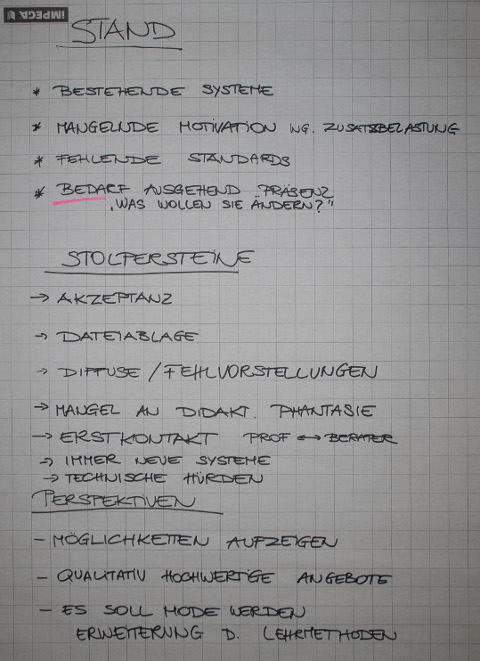 IMPEGA
STAND
* BESTEHENDE SYSTEME
* MANGELNDE MOTIVATION WG. ZUSATZBELASTUNG
* FEHLENDE STANDARDS
* BEDARF AUSGEHEND PRÄSENZ
"WAS WOLLEN SIE ÄNDERN?"
STOLPERSTEINE
→ AKZEPTANZ
→ DATEIABLAGE
→ DIFFUSE / FEHLVORSTELLUNGEN
→ MANGEL AN DIDAKT. PHANTASIE
→ ERSTKONTAKT PROF ↔ BERATER
→ IMMER NEUE SYSTEME
→ TECHNISCHE HÜRDEN
PERSPEKTIVEN
- MÖGLICHKEITEN AUFZEIGEN
- QUALITATIV HOCHWERTIGE ANGEBOTE
- ES SOLL MODE WERDEN
ERWEITERUNG D. LEHRMETHODEN